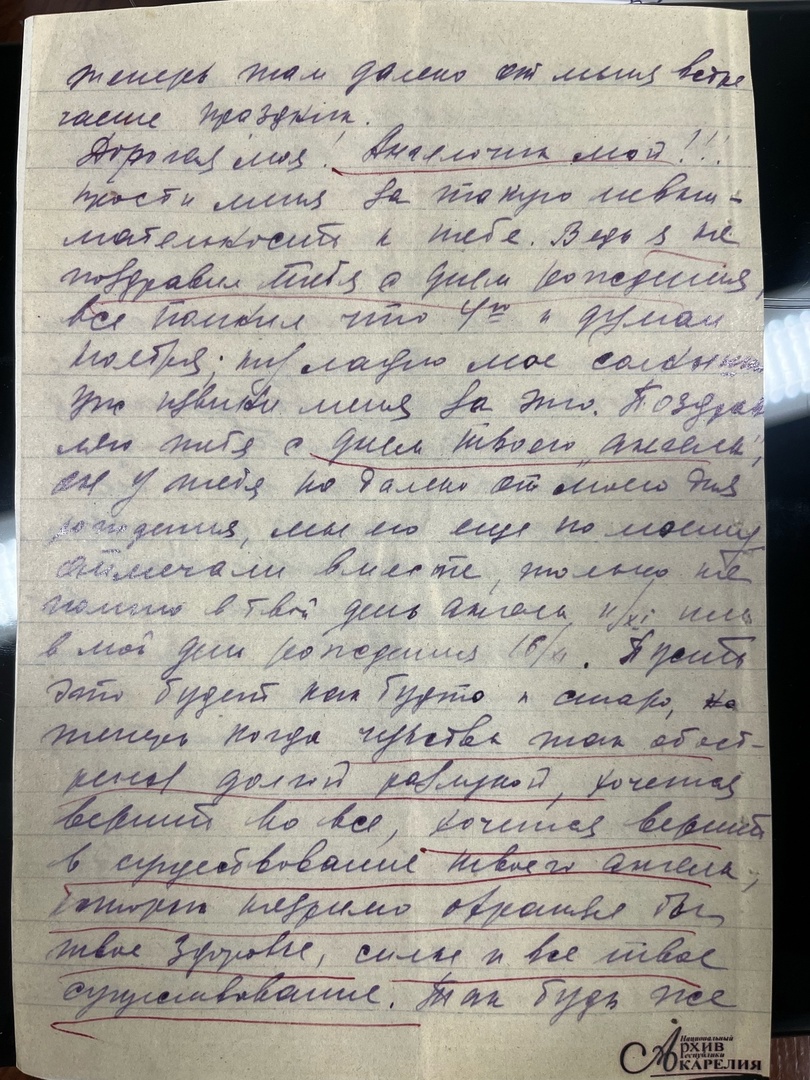 теперь там далеко от меня встре
чаеше праздник.
Дорогая моя! Ангелочик мой!!!
прости меня за такую невни-
мательность к тебе. Ведь я не
поздравил тебя с днем рождения,
все помнил что 4го и думал
ноября; ну ладно мое солнышко
уж извини меня за это. Поздрав
ляю тебя с днем твоего „ангела",
он у тебя не далеко от моего дня
рождения, мы его еще по моему
отмечали вместе, только не
помню в твой день ангела 11/XI или
в мой день рождения 16/XI. Пусть
это будет как будто и старо, но
теперь когда чувства так обост-
рены долгой разлукой, хочется
верить во все, хочется верить
в существование твоего ангела,
который незримо охранял бы
твое здоровье, силы и все твое
существование. Так будь же
Национальный
Архив
Республики
Карелия